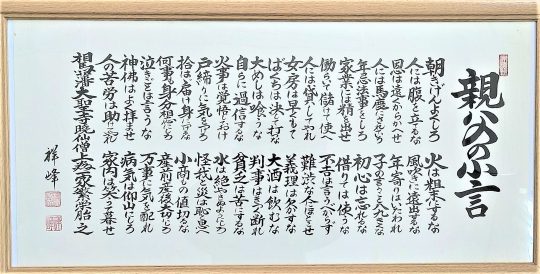 親父の小言
朝きげんよくしろ
人には腹を立てるな
恩は遠くからかへせ
人には馬鹿にされていろ
年忌法事をしろ
家業には精を出せ
働いて儲けて使へ
人には貸してやれ
女房は早くもて
ばくちは決して打つな
大めしは喰うな
自らに過信するな
火事は覚悟しておけ
戸締りに気をつけろ
拾はば届け身につけるな
何事も身分相應にしろ
泣きごとは言うな
神佛はよく拝ませ
人の苦労は助けてやれ
火は粗末にするな
風吹きに遠出するな
年寄りはいたわれ
子の言うこと八九きくな
初心は忘れるな
借りては使うな
不吉は言うべからず
難渋な人にほどこせ
義理は欠かすな
大酒は飲むな
判事はきつく断れ
貧乏は苦にするな
水は絶やさぬようにしろ
怪我と災は恥と思へ
小商もの値切るな
産前産後大切にしろ
万事に気を配れ
病気は仰山にしろ
家内は笑って暮せ
相馬藩大聖寺暁仙僧上
祥峰